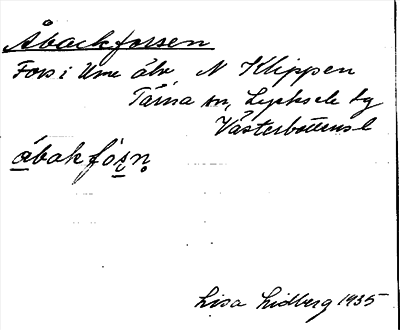 Åbackforsen
Fors i Ume älv, N Klippen
Tärna sn, Lycksele lg
Västerbottens l
åbakfåsn
Lisa Lidberg 1935